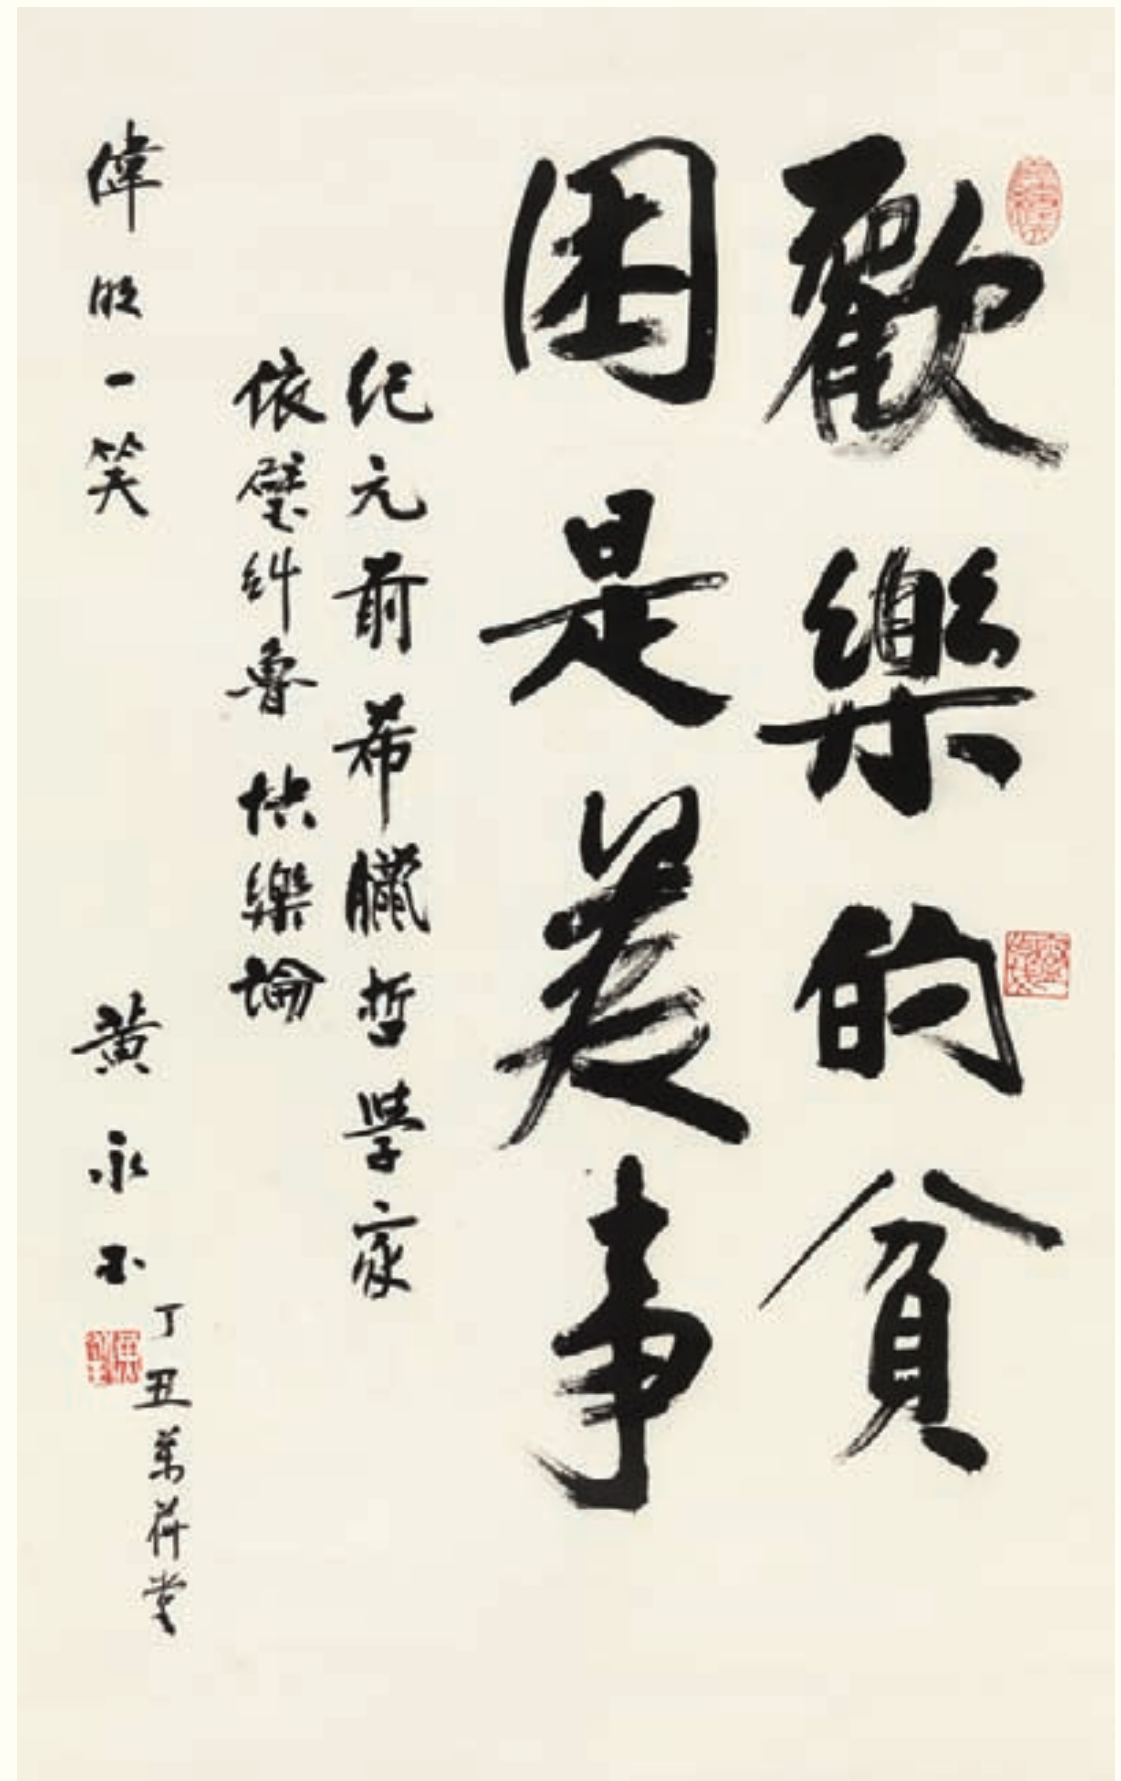 歡樂的貧
困是美事
紀元前希臘哲學家
依璧糾魯快樂論
偉 一笑
黄永玉
丁丑萬荷堂